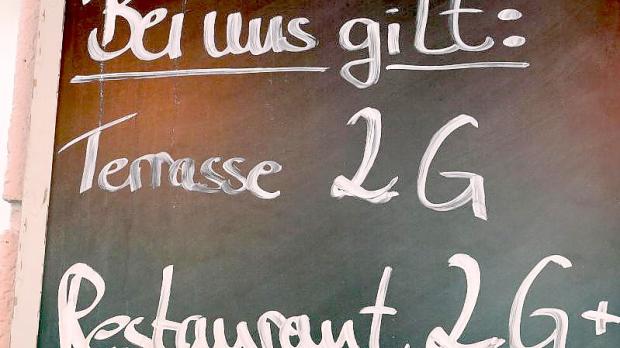 Bei uns gilt:
Terrasse 2G
Restaurant 2G+